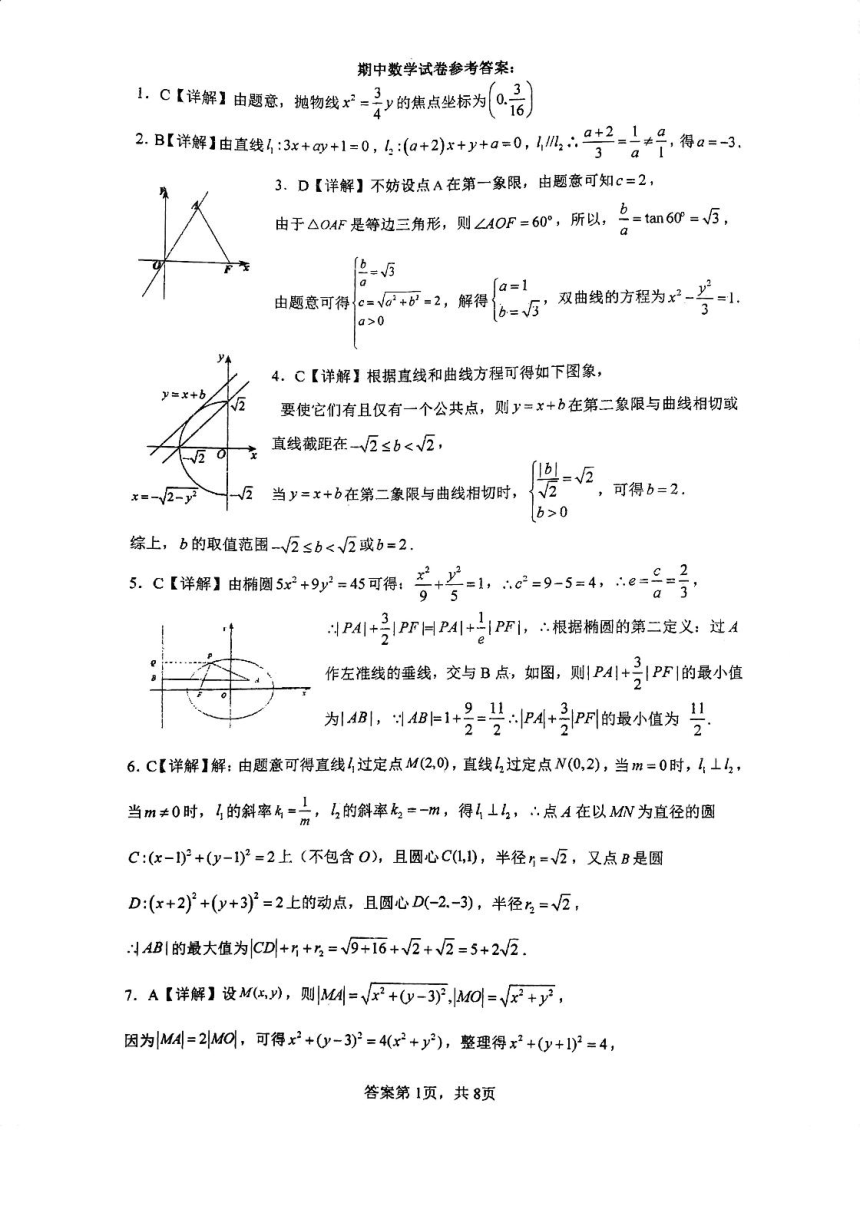 期中数学试卷参考答案：
1．C【详解】由题意，抛物线x²=3/4 y的焦点坐标为(0, 3/16)
2．B【详解】由直线l₁:3x+ay+1=0，l₂:(a+2)x+y+a=0，l₁//l₂∴(a+2)/3=1/a≠a/1，得a=-3．
3．D【详解】不妨设点A在第一象限，由题意可知c=2，
A
O F x
由于△OAF是等边三角形，则∠AOF=60°，所以，b/a=tan60°=√3，
由题意可得{b/a=√3, c=√(a²+b²)=2, a>0，解得{a=1, b=√3，双曲线的方程为x²-y²/3=1．
y
y=x+b
√2
-√2 O x
x=-√(2-y²) -√2
4．C【详解】根据直线和曲线方程可得如下图象，
要使它们有且仅有一个公共点，则y=x+b在第二象限与曲线相切或
直线截距在-√2≤b<√2，
当y=x+b在第二象限与曲线相切时，{|b|/√2=√2, b>0，可得b=2．
综上，b的取值范围-√2≤b<√2或b=2．
5．C【详解】由椭圆5x²+9y²=45可得：x²/9+y²/5=1，∴c²=9-5=4，∴e=c/a=2/3，
∴|PA|+3/2|PF|=|PA|+1/e|PF|，∴根据椭圆的第二定义：过A
Q P
B A
F O x
作左准线的垂线，交与B点，如图，则|PA|+3/2|PF|的最小值
为|AB|，∵|AB|=1+9/2=11/2∴|PA|+3/2|PF|的最小值为11/2．
6．C【详解】解：由题意可得直线l₁过定点M(2,0)，直线l₂过定点N(0,2)，当m=0时，l₁⊥l₂，
当m≠0时，l₁的斜率k₁=1/m，l₂的斜率k₂=-m，得l₁⊥l₂，∴点A在以MN为直径的圆
C:(x-1)²+(y-1)²=2上（不包含O)，且圆心C(1,1)，半径r₁=√2，又点B是圆
D:(x+2)²+(y+3)²=2上的动点，且圆心D(-2,-3)，半径r₂=√2，
∴|AB|的最大值为|CD|+r₁+r₂=√(9+16)+√2+√2=5+2√2．
7．A【详解】设M(x,y)，则|MA|=√(x²+(y-3)²),|MO|=√(x²+y²)，
因为|MA|=2|MO|，可得x²+(y-3)²=4(x²+y²)，整理得x²+(y+1)²=4，
答案第1页，共8页